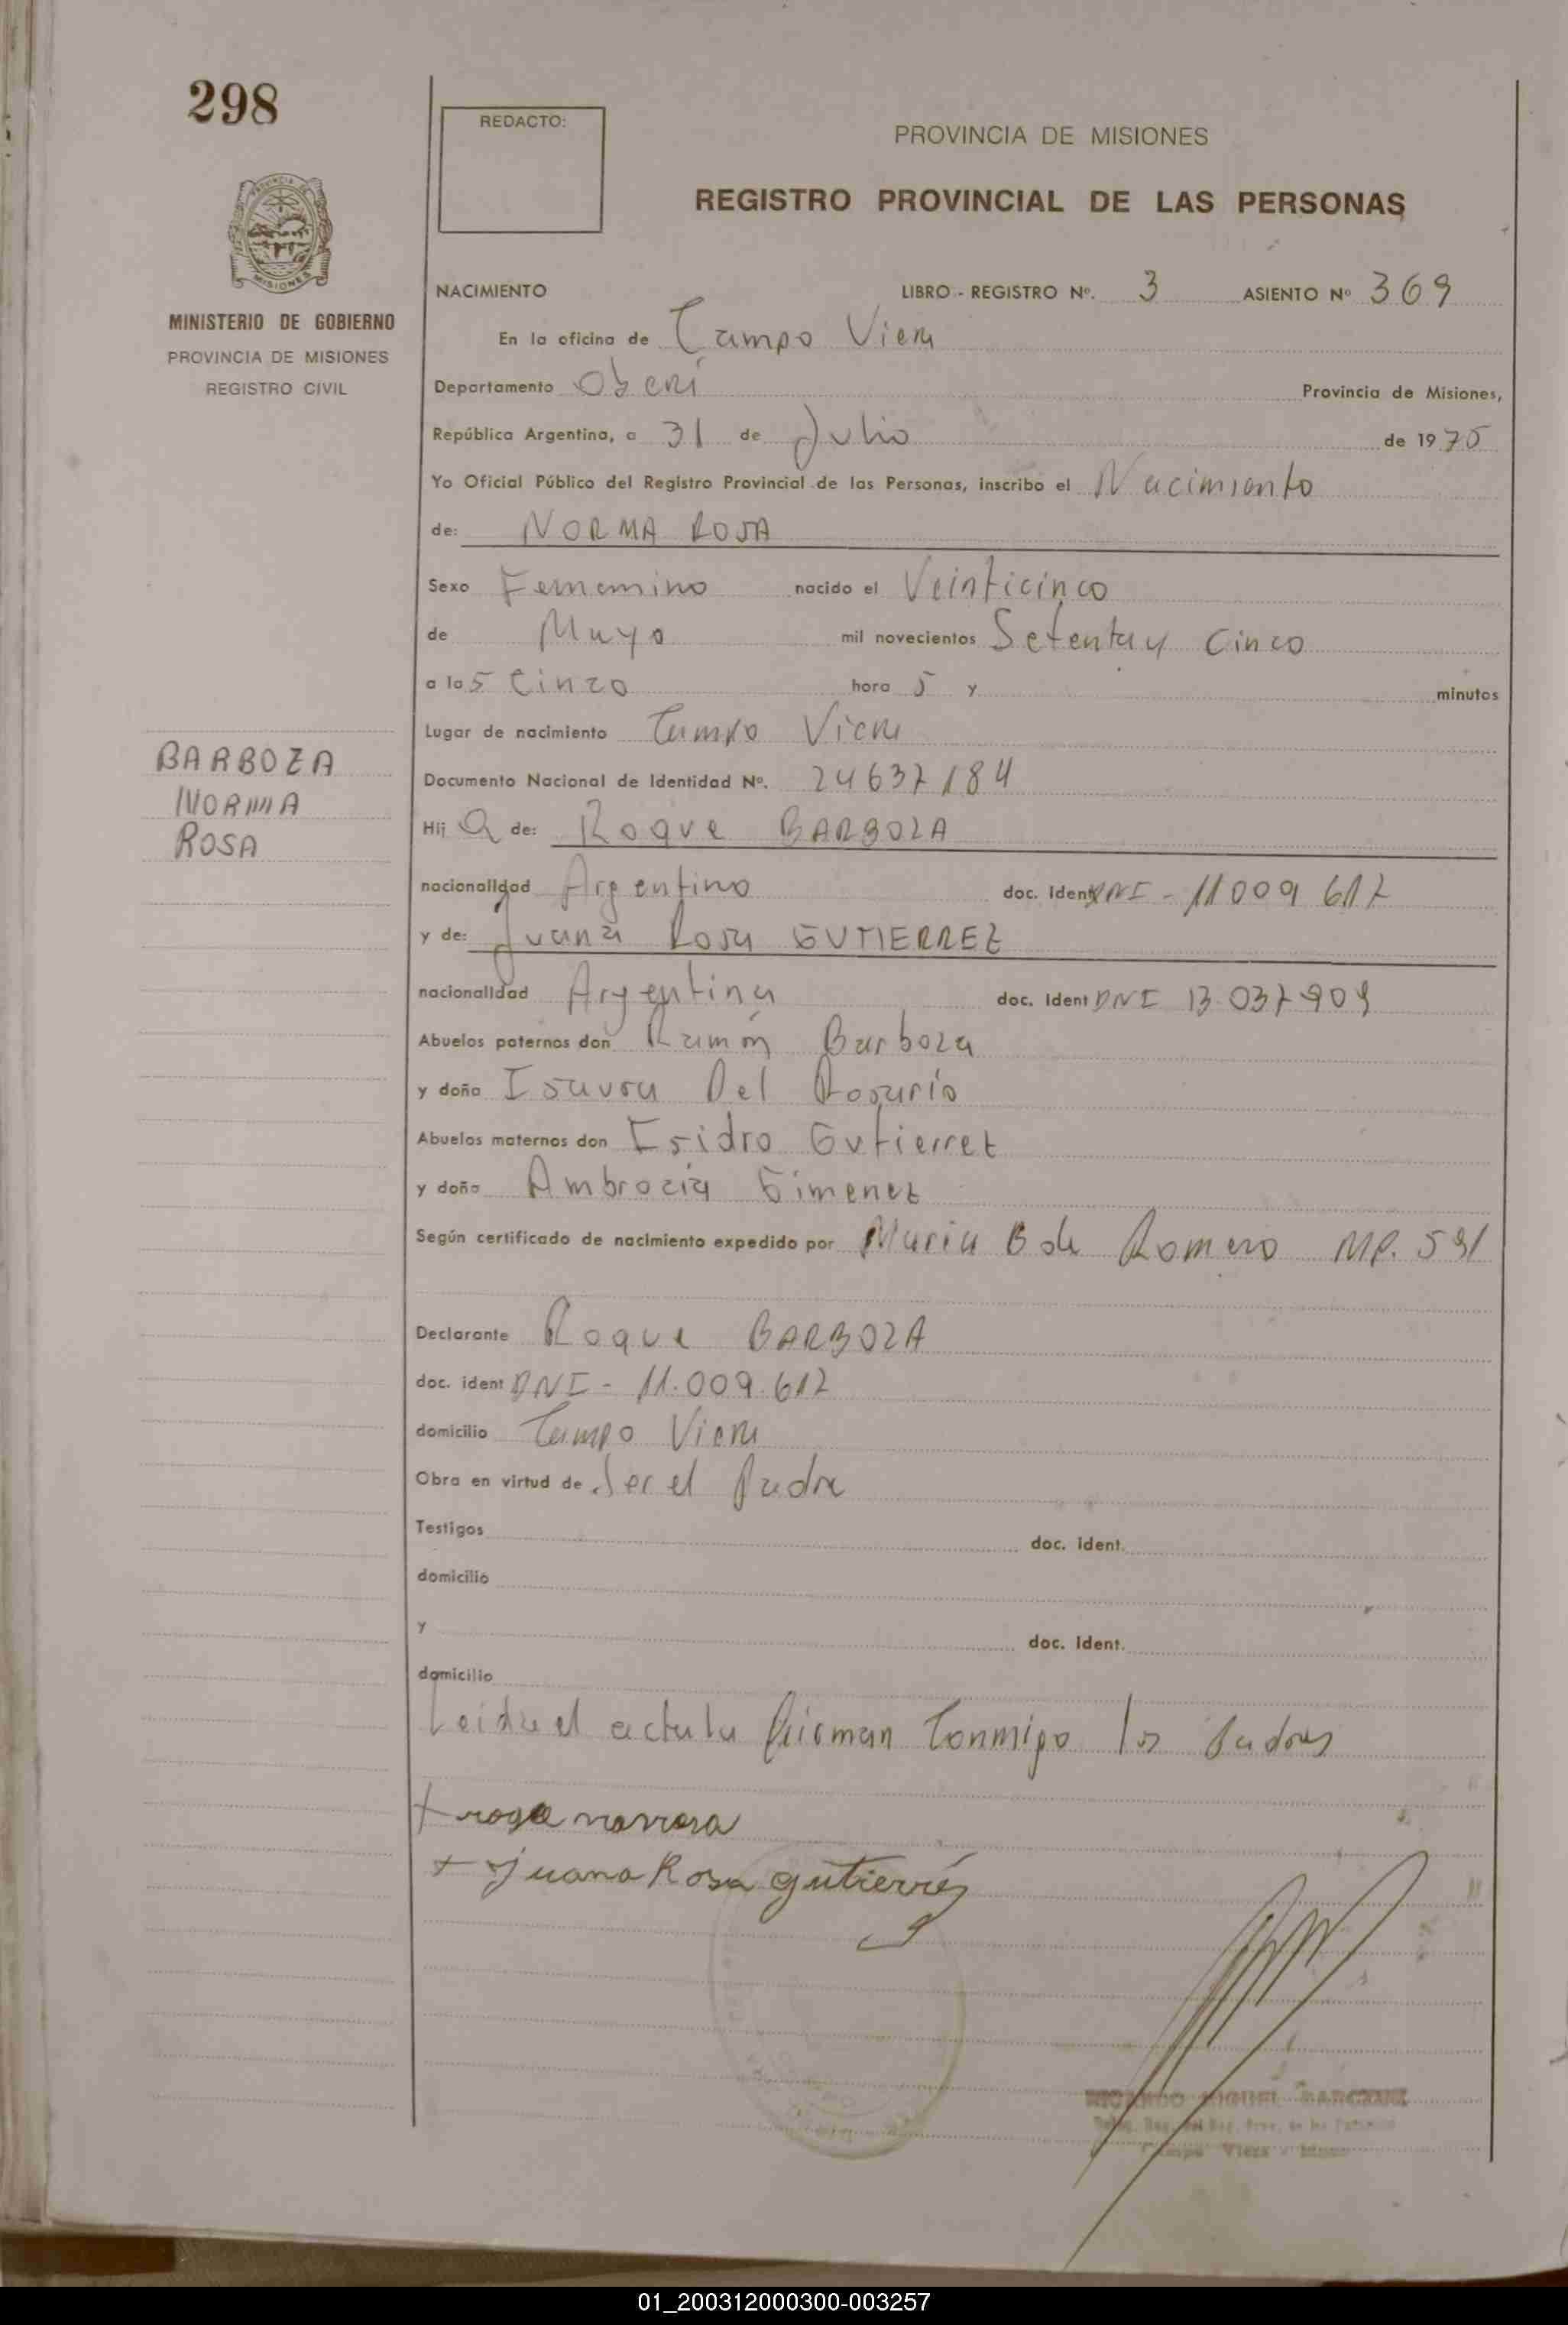 298
REDACTO:
PROVINCIA DE MISIONES
REGISTRO PROVINCIAL DE LAS PERSONAS
MISIONES
MINISTERIO DE GOBIERNO
PROVINCIA DE MISIONES
REGISTRO CIVIL
NACIMIENTO LIBRO - REGISTRO Nº. 3 ASIENTO Nº 369
En la oficina de Campo Viera
Departamento Oberá Provincia de Misiones,
República Argentina, a 31 de Julio de 1975
Yo Oficial Público del Registro Provincial de las Personas, inscribo el Nacimiento
de: NORMA ROSA
Sexo Femenino nacido el Veinticinco
de Mayo mil novecientos Setenta y Cinco
a las 5 Cinco hora 5 y minutos
Lugar de nacimiento Campo Viera
Documento Nacional de Identidad Nº. 24637184
BARBOZA
NORMA
ROSA
Hij a de: Roque BARBOZA
nacionalidad Argentino doc. Ident DNI - 11009 617
y de: Juana Rosa GUTIERREZ
nacionalidad Argentina doc. Ident DNI 13.037909
Abuelos paternos don Ramón Barboza
y doña Isaura Del Rosario
Abuelos maternos don Isidro Gutierrez
y doña Ambrocia Gimenez
Según certificado de nacimiento expedido por Maria B de Romero MP. 591
Declarante Roque BARBOZA
doc. ident DNI - 11.009.617
domicilio Campo Viera
Obra en virtud de Ser el Padre
Testigos doc. Ident.
domicilio
y doc. Ident.
domicilio
Leida el acta la firman Conmigo los Padres
+ Juana Rosa gutierréz
RICARDO MIGUEL
Campo Viera
01_200312000300-003257